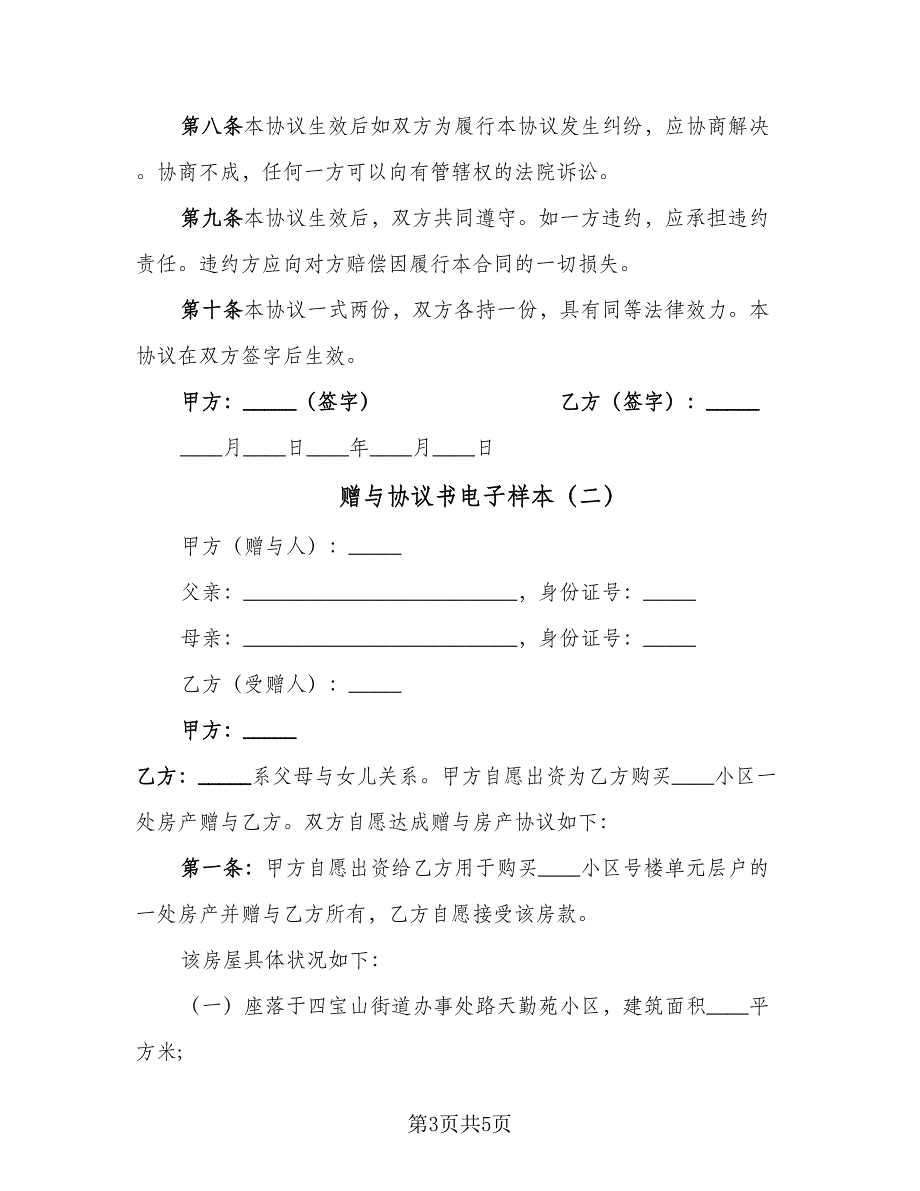 第八条本协议生效后如双方为履行本协议发生纠纷，应协商解决
。协商不成，任何一方可以向有管辖权的法院诉讼。
第九条本协议生效后，双方共同遵守。如一方违约，应承担违约
责任。违约方应向对方赔偿因履行本合同的一切损失。
第十条本协议一式两份，双方各持一份，具有同等法律效力。本
协议在双方签字后生效。
甲方：_____（签字） 乙方（签字）：_____
____月____日____年____月____日
赠与协议书电子样本（二）
甲方（赠与人）：_____
父亲：__________________________，身份证号：_____
母亲：__________________________，身份证号：_____
乙方（受赠人）：_____
甲方：_____
乙方：_____系父母与女儿关系。甲方自愿出资为乙方购买____小区一
处房产赠与乙方。双方自愿达成赠与房产协议如下：
第一条：甲方自愿出资给乙方用于购买____小区号楼单元层户的
一处房产并赠与乙方所有，乙方自愿接受该房款。
该房屋具体状况如下：
（一）座落于四宝山街道办事处路天勤苑小区，建筑面积____平
方米;
第3页共5页